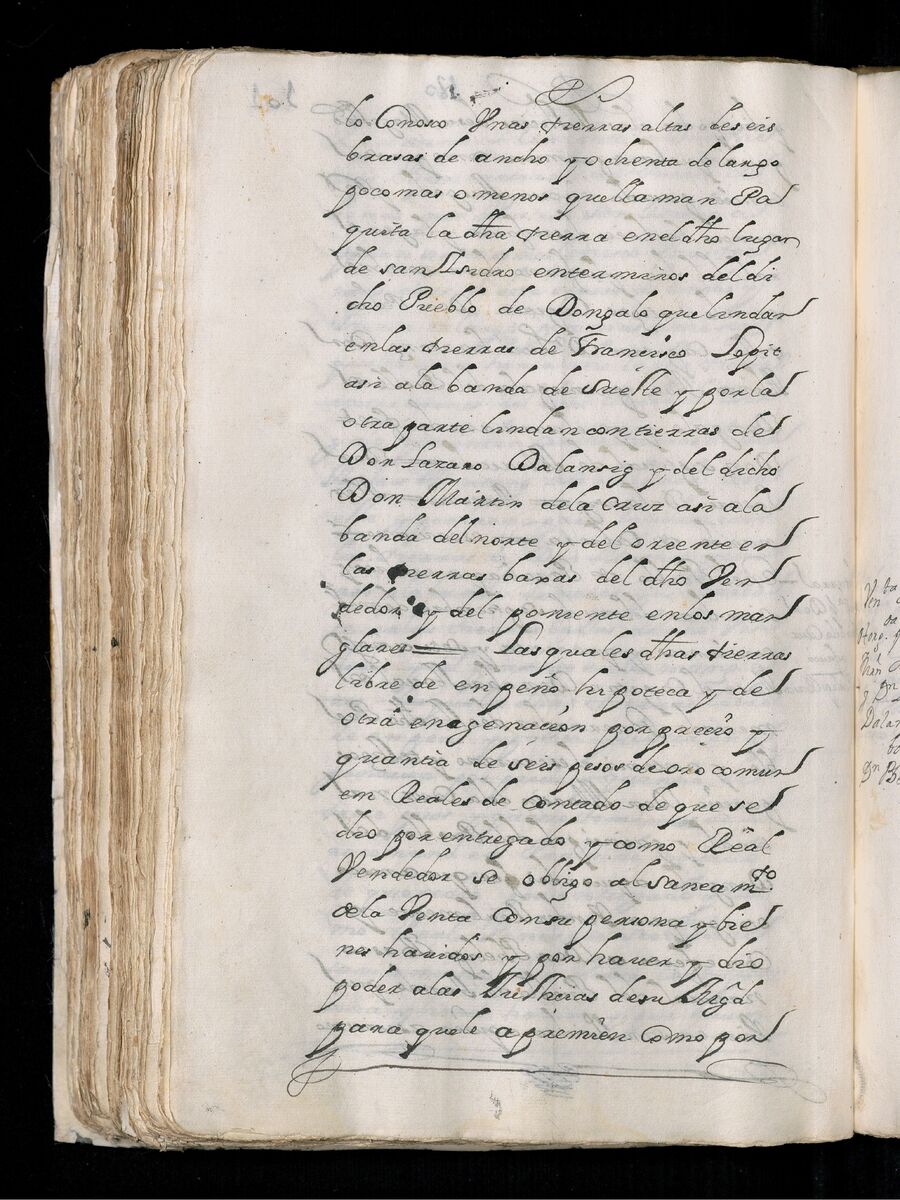 lo Conosco Vnas tierras altas de seis
brasas de ancho y ochenta de largo
poco mas o menos que llaman Pa
quita la dha tierra en el dho lugar
de san Isidro enterminos del di
cho Pueblo de Dongalo que lindan
en las tierras de Francisco Sopit
asi ala banda de Sueste y por la
otra parte lindan con tierras de
Don Lazaro Dalansig y del dicho
Don Martin dela Cruz asi ala
banda del norte y del oriente en
las tierras baxas del dho Ven
dedor y del poniente enlos man
glares Las quales dhas tierras
libre de en peño hipoteca y de
otra enagenacion por precio y
quantia de seis pesos de oro comun
en Reales de contado de que se
dio por entregado y como Real
Vendedor se obligo al saneamto
dela Venta Consu persona y bie
nes havidos y por haver y dio
poder alas Justicias desu Magd
para quele apremien Como por
Ven ta